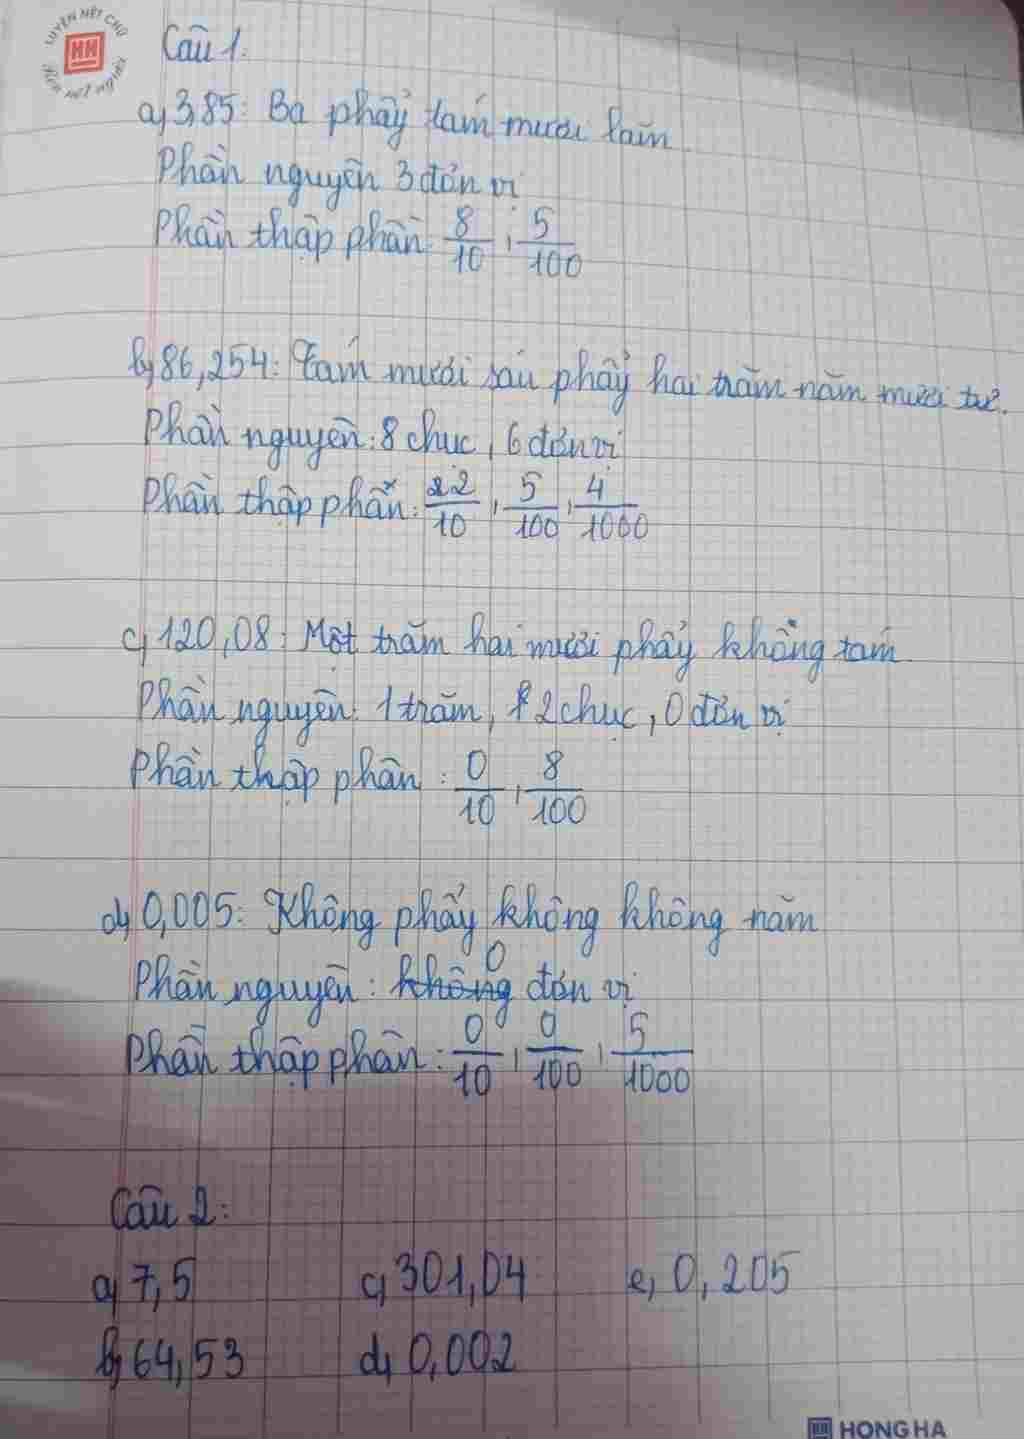 LUYỆN NẾT CHỮ
HH
Rèn nết người
Câu 1.
a, 3,85: Ba phẩy tám mươi lăm
Phần nguyên 3 đơn vị
Phần thập phân 8/10, 5/100
b, 86,254: Tám mươi sáu phẩy hai trăm năm mươi tư.
Phần nguyên: 8 chục, 6 đơn vị
Phần thập phân: 22/10, 5/100, 4/1000
c, 120,08: Một trăm hai mươi phẩy không tám
Phần nguyên: 1 trăm, 2 chục, 0 đơn vị
Phần thập phân: 0/10, 8/100
d, 0,005: Không phẩy không không năm
0
Phần nguyên: không đơn vị
Phần thập phân: 0/10, 0/100, 5/1000
Câu 2:
a, 7,5 c, 301,04 e, 0,205
b, 64,53 d, 0,002
HONG HA